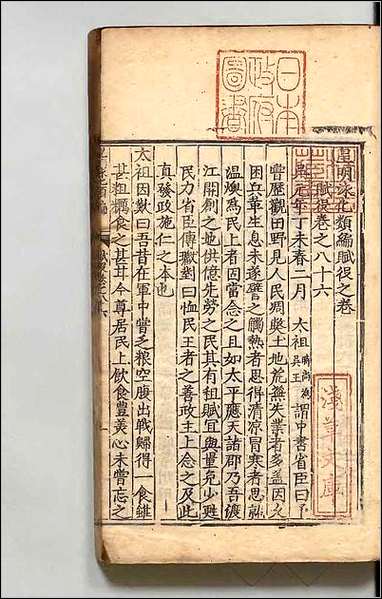 日本
政府
圖書
皇明泳化類編賦役之卷
賦役卷之八十六
吳元年丁未春二月 太祖時尚為吳王謂中書省臣曰予
嘗歷觀田野見人民凋獘土地荒蕪失業者多盖因久
困兵革生息未遂譬之觸熱者思得清凉冒寒者思就
温燠為民上者固當念之且如太平應天諸郡乃吾渡
江開創之地供億先勞之民其有租賦宜與量免少甦
民力省臣傅瓛對曰恤民王者之善政主上念之及此
真發政施仁之本也
太祖因歎曰吾昔在軍中嘗乏粮空腹出戰歸得一食雖
甚粗糲食之甚甘今尊居民上飲食豊美心未嘗忘之
淺草文庫